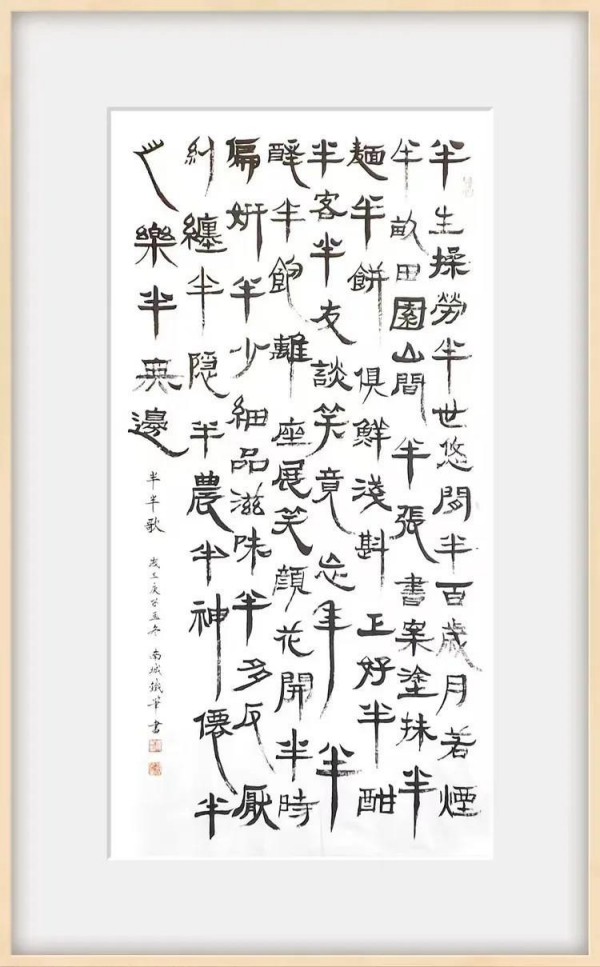 半生操勞半世悠閒半百歲月若煙
半畝田園山間半張書案塗抹半
麵半餅俱鮮淺斟正好半酣
半客半友談笑竟忘年半
醒半飽離座展笑顏花開半時
偏妍半少細品滋味半多反厭
糾纏半隱半農半神僊半
樂半無邊
半半歌 歲在庚子孟冬 南城鐵筆書